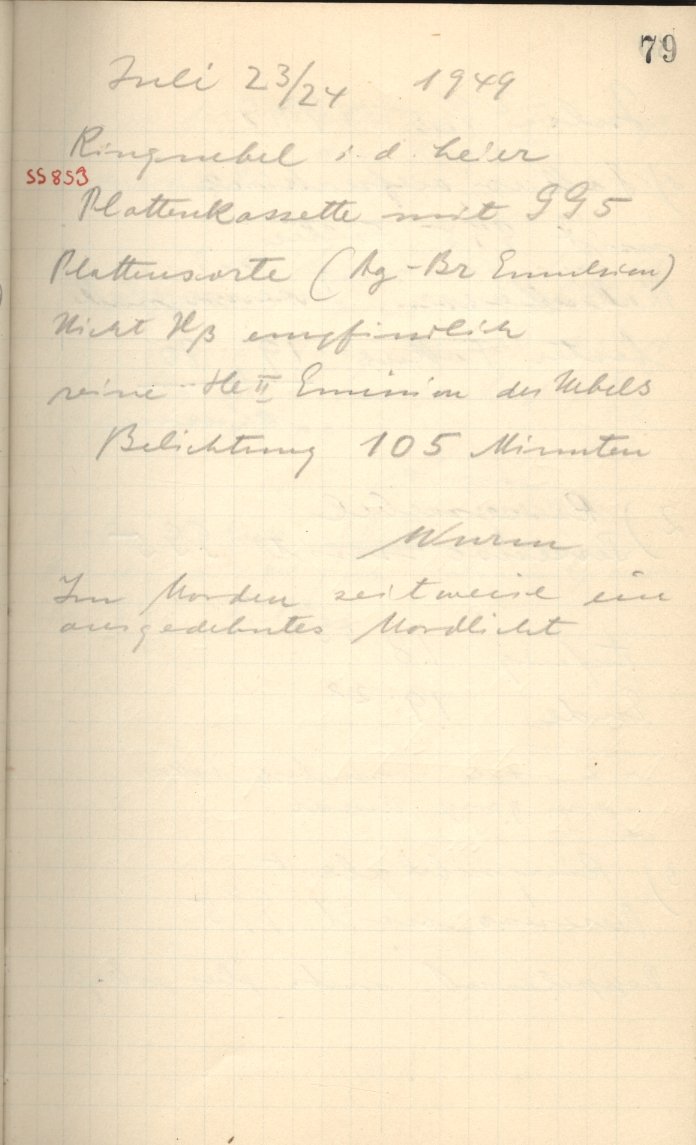 79
Juli 23/24 1949
Ringnebel i. d. Leier
SS853
Plattenkassette mit GG5
Plattensorte (Ag-Br Emulsion)
Nicht Hβ empfindlich
reine He II Emission des Nebels
Belichtung 105 Minuten
Wurm
Im Norden zeitweise ein
ausgedehntes Nordlicht